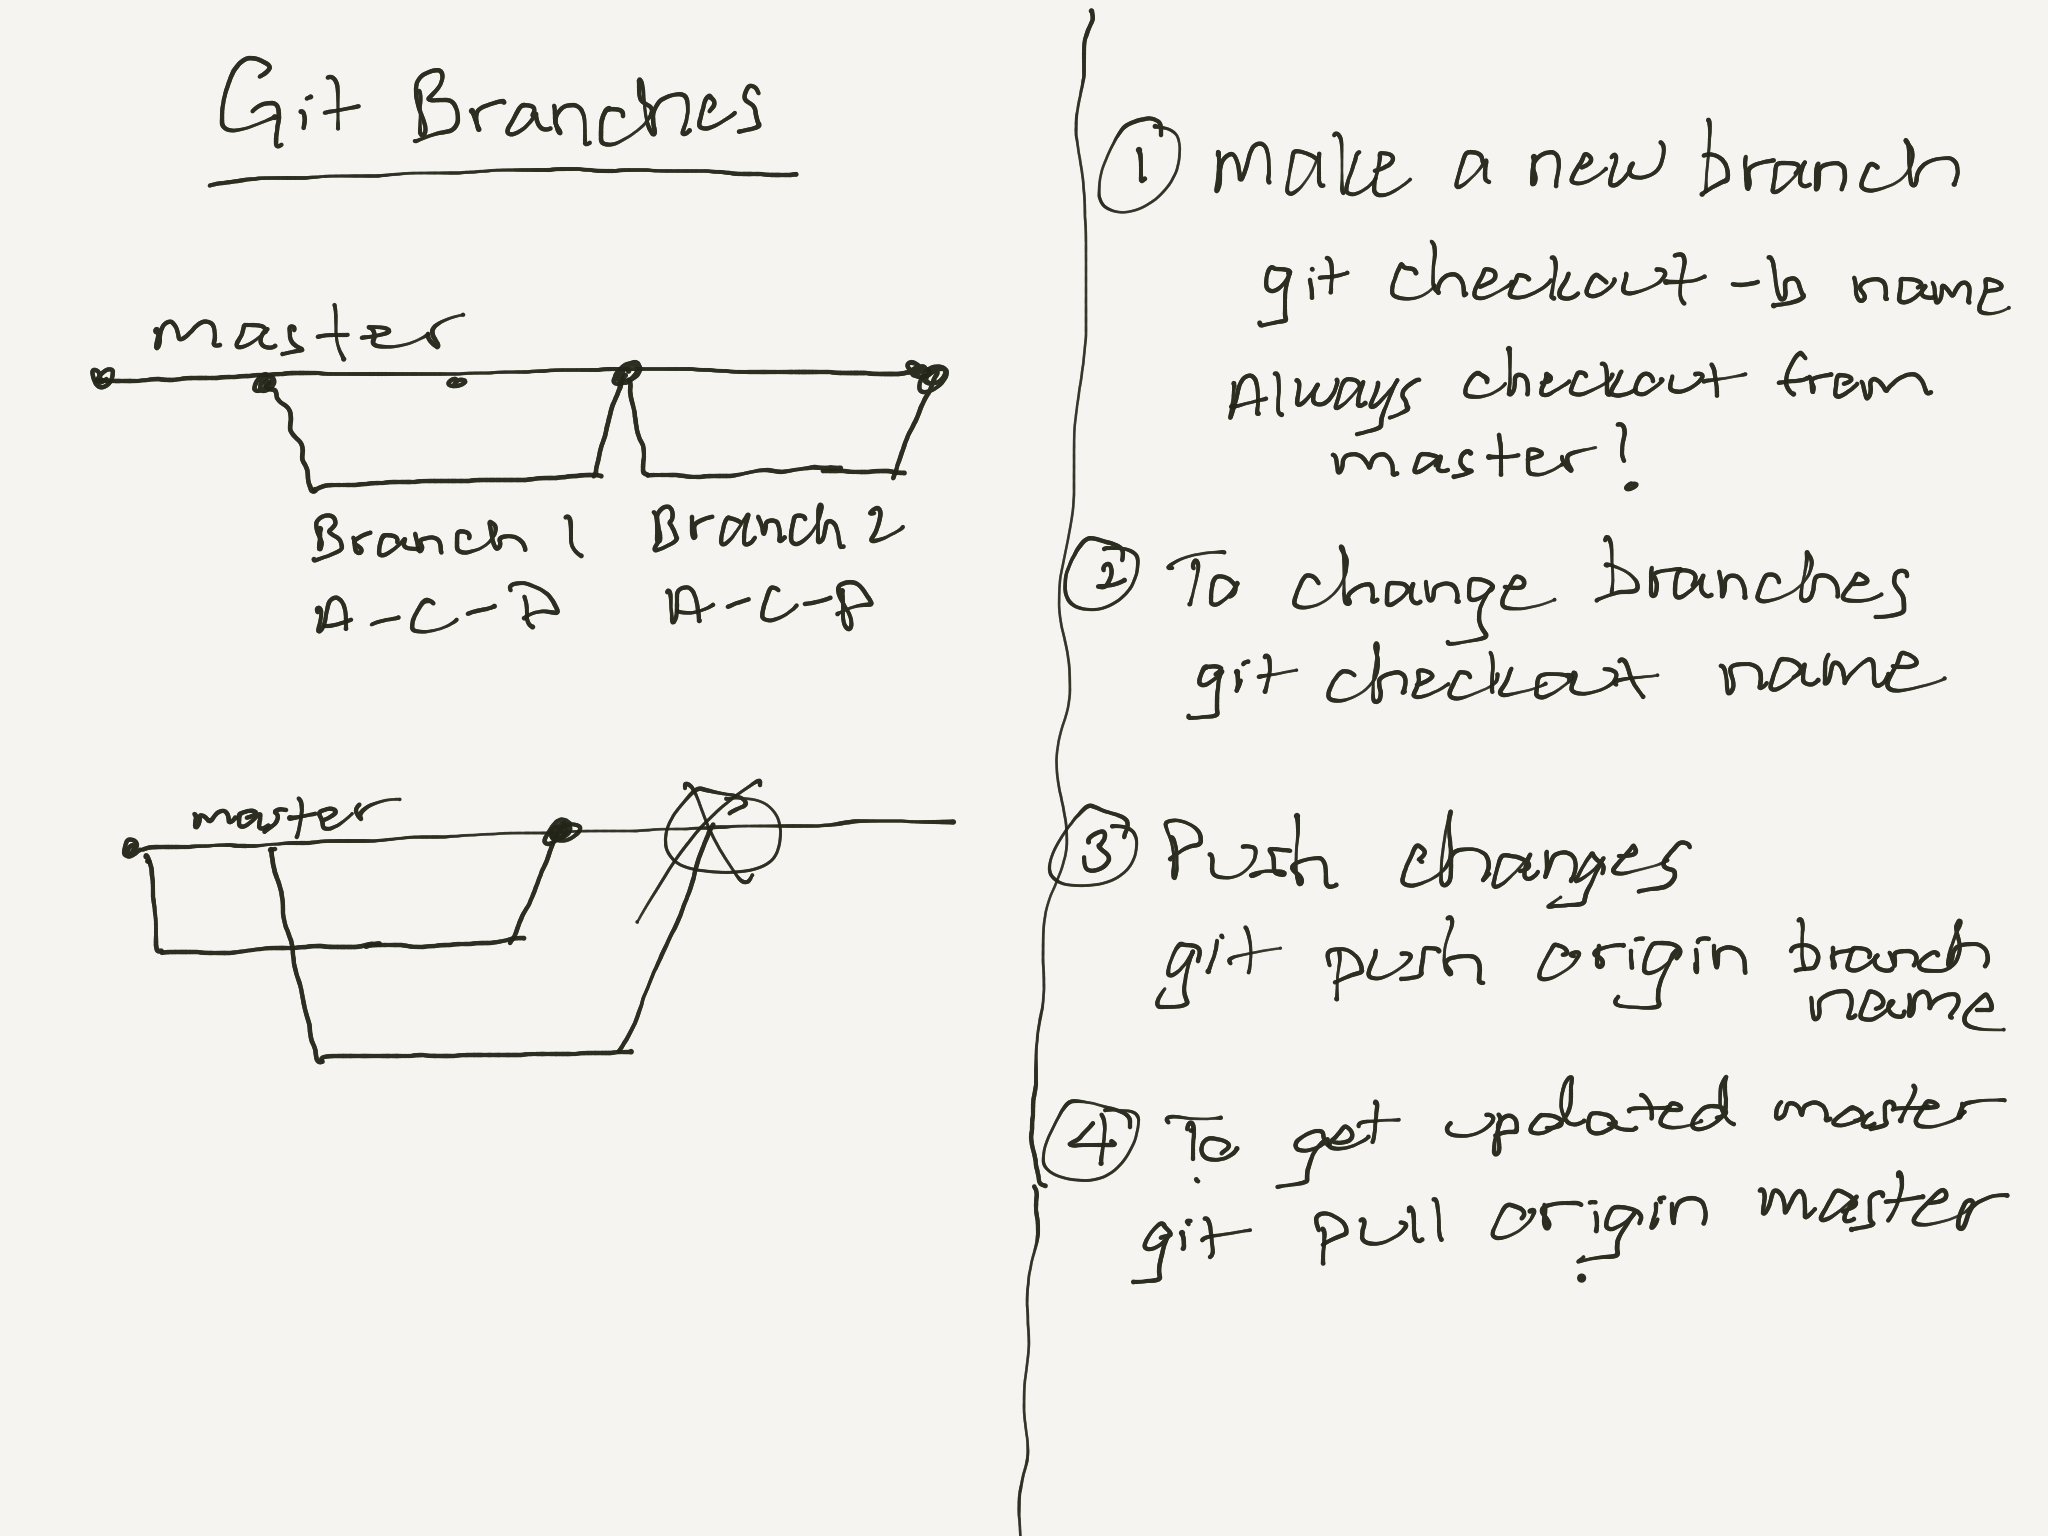 Git Branches
master
Branch 1 Branch 2
A-C-P A-C-P
master
① Make a new branch
git checkout -b name
Always checkout from
master!
② To change branches
git checkout name
③ Push changes
git push origin branch
name
④ To get updated master
git pull origin master